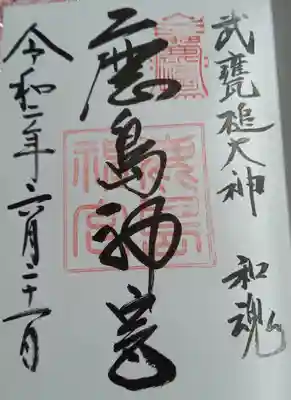 武甕槌大神 和魂
鹿島神宮
鹿島神宮
令和二年六月二十一日